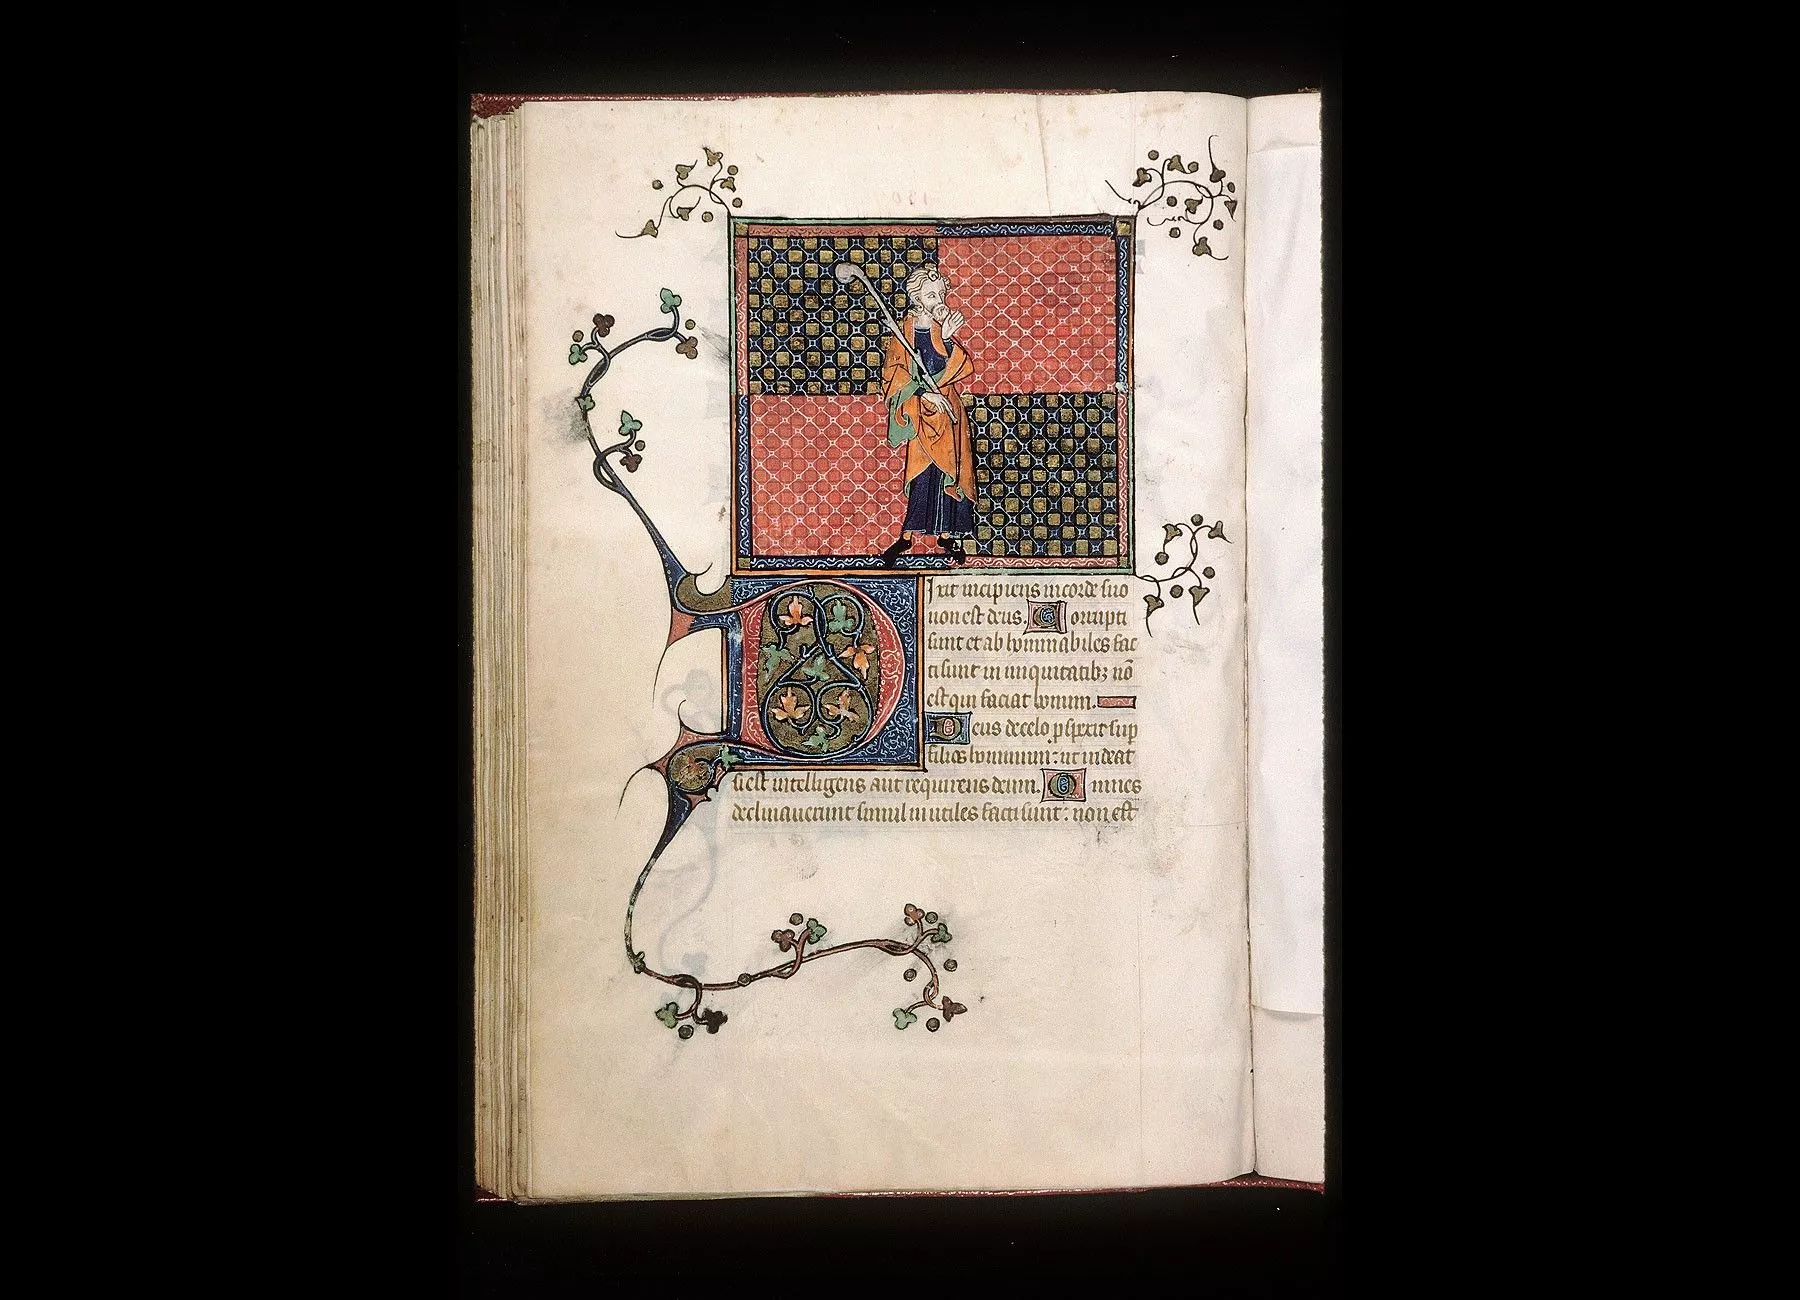 Dixit incipiens in corde suo
non est deus. Corrupti
sunt et ab hominabiles fac
ti sunt in iniquitatibꝫ nō
est qui faciat bonum.
Deus de celo ꝓspexit suꝑ
filios hominum: ut uideat
si est intelligens aut requirens deum. Omnes
declinauerunt simul inutiles facti sunt: non est